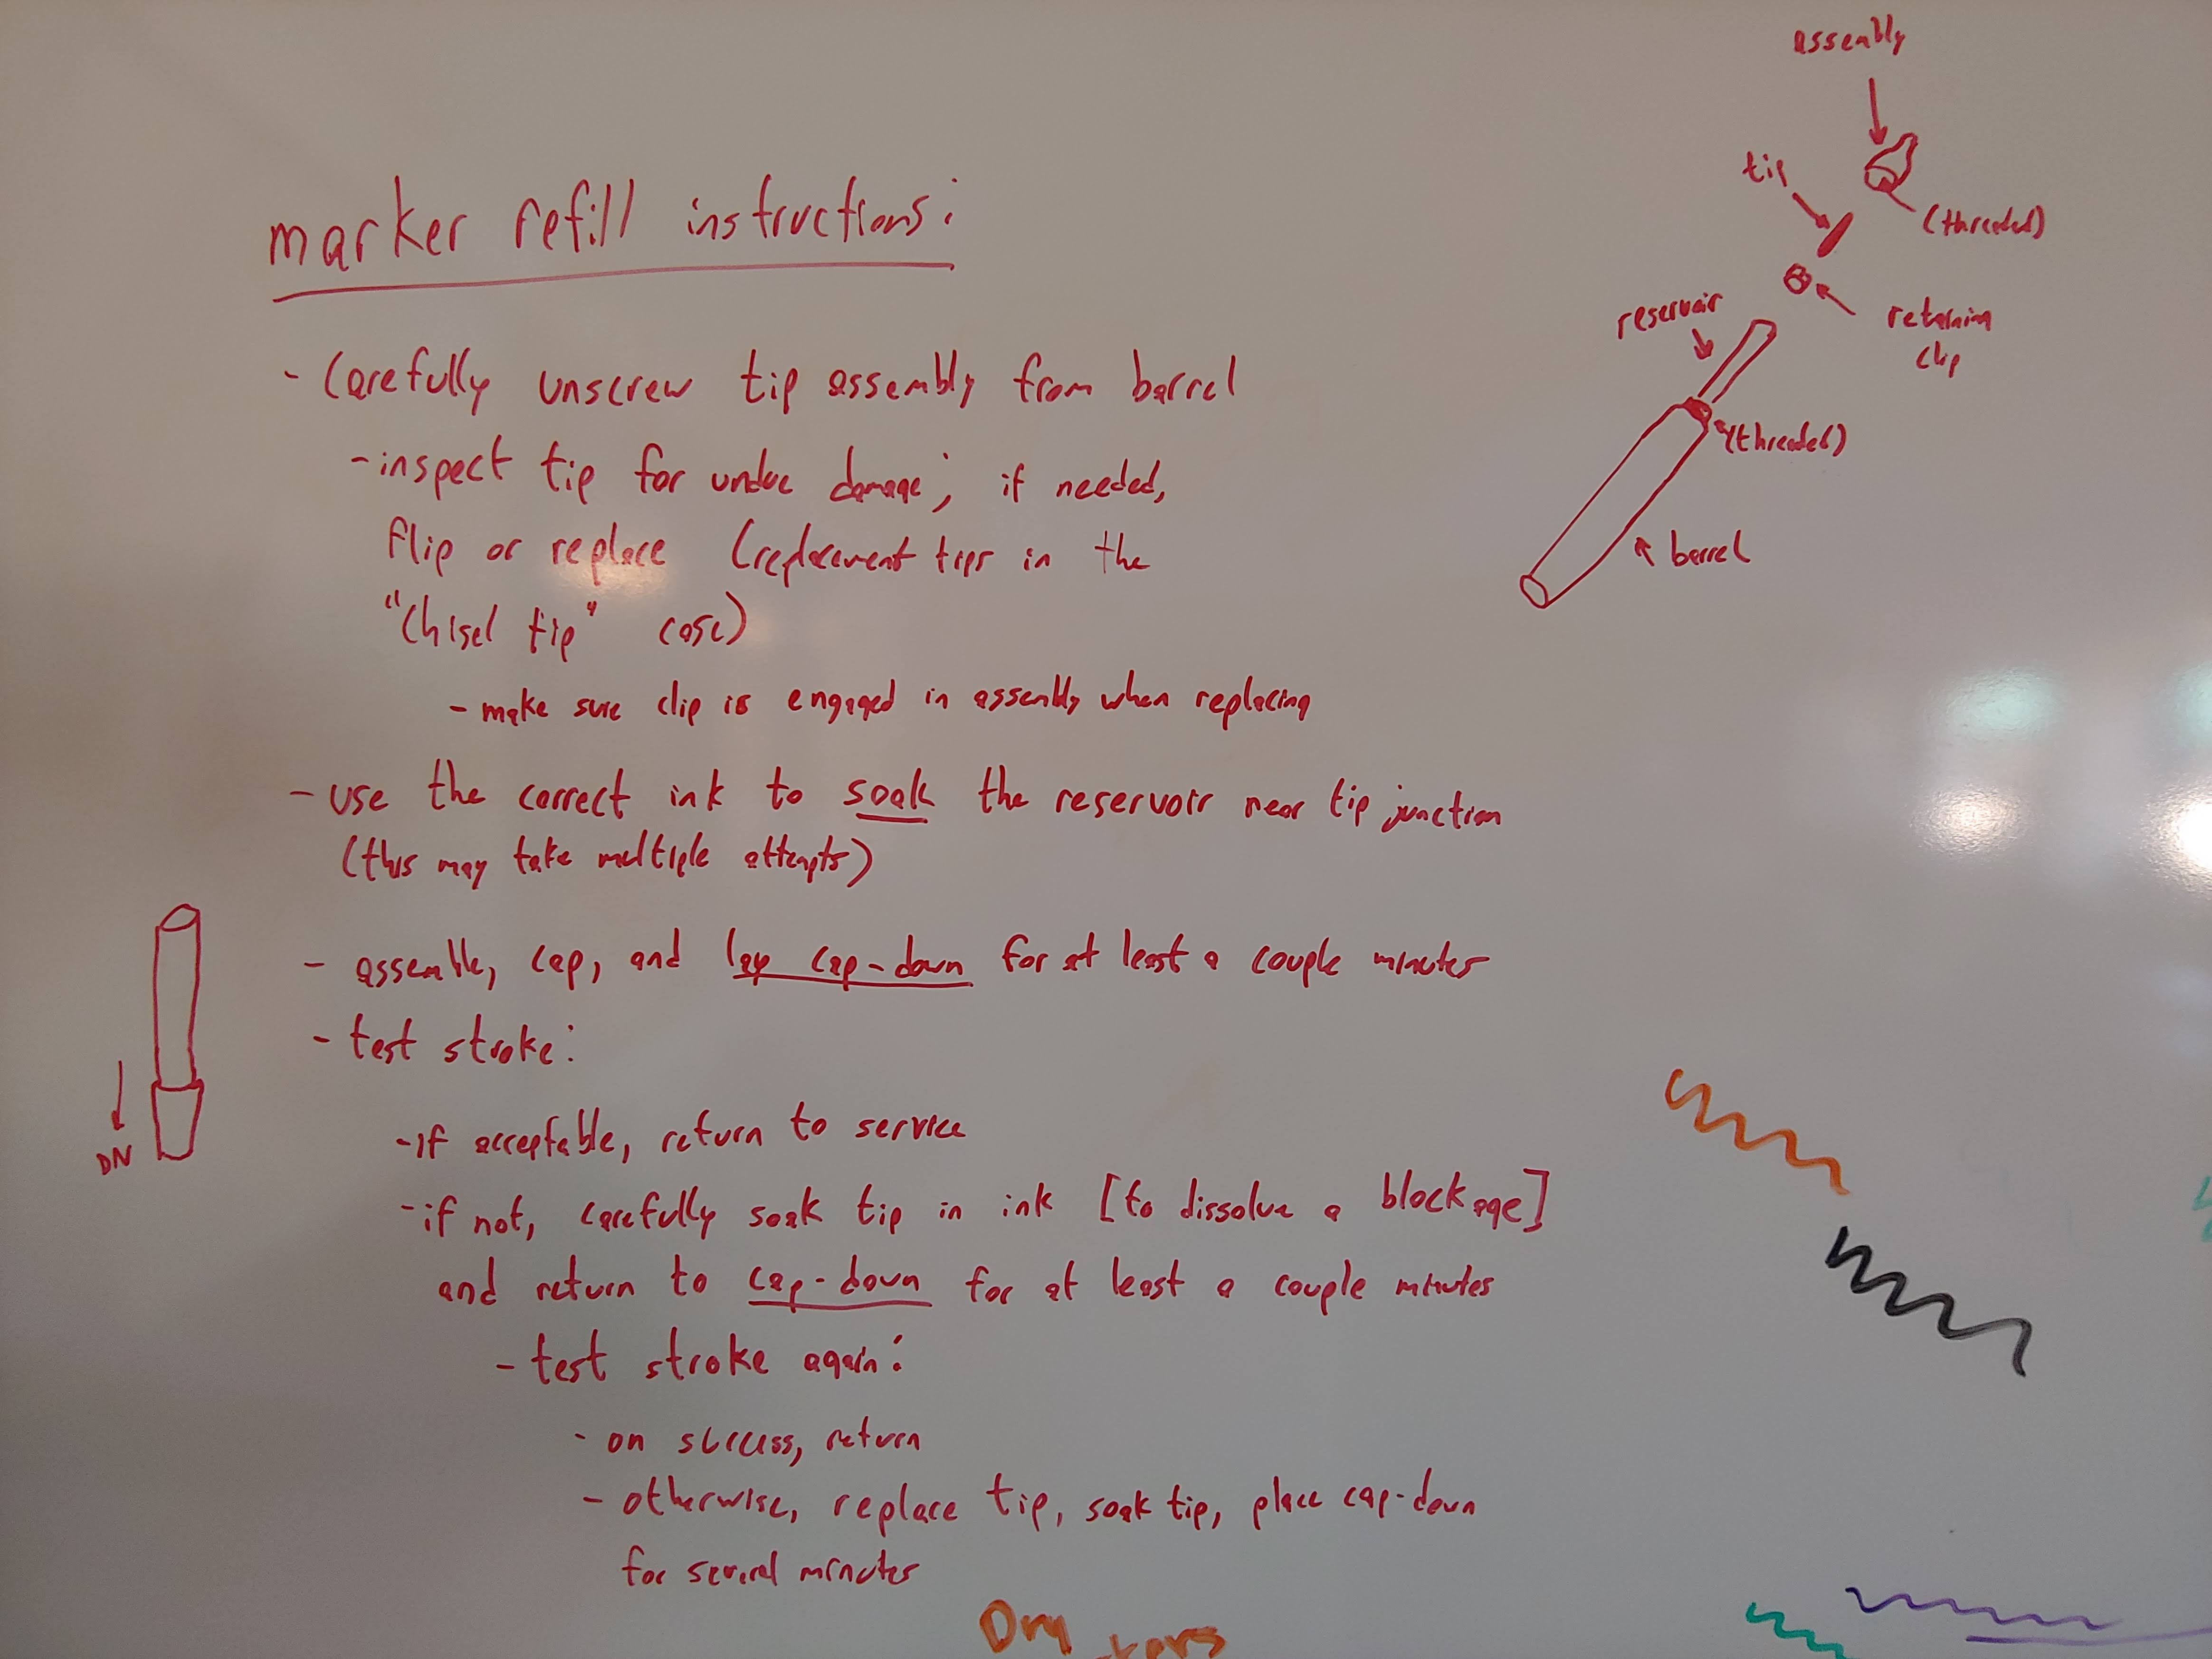 marker refill instructions:
- Carefully unscrew tip assembly from barrel
- inspect tip for undue damage; if needed,
flip or replace (replacement tips in the
"Chisel tip" case)
- make sure clip is engaged in assembly when replacing
- use the correct ink to soak the reservoir near tip junction
(this may take multiple attempts)
- assemble, cap, and lay cap-down for at least a couple minutes
- test stroke:
- if acceptable, return to service
- if not, carefully soak tip in ink [to dissolve a blockage]
and return to cap-down for at least a couple minutes
- test stroke again:
- on success, return
- otherwise, replace tip, soak tip, place cap-down
for several minutes
DN
assembly
tip
(threaded)
reservoir
retaining
clip
(threaded)
barrel
Dry